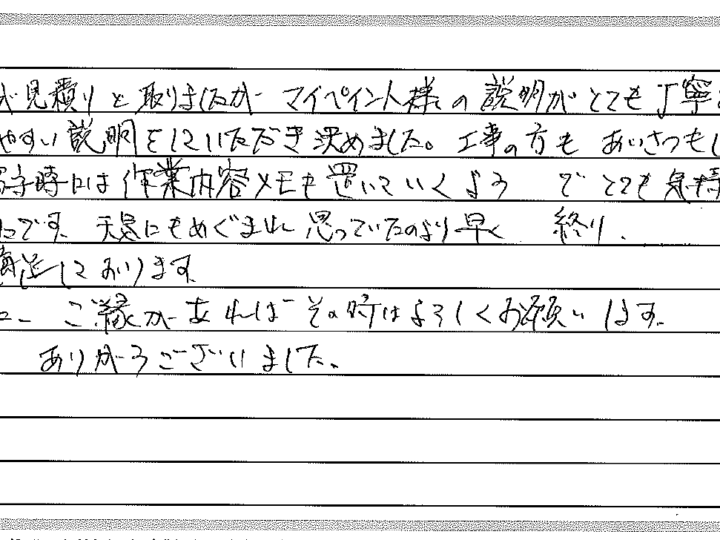 見積りを取りましたが マイペイント様の説明がとても丁寧
やすい説明をしていただき決めました。工事の方も あいさつもし
時には作業内容メモも置いていくよう で とても気持
です。天気にもめぐまれ 思っていたのより早く 終り、
満足しております。
ご縁があれば その時はよろしくお願いします。
ありがとうございました。